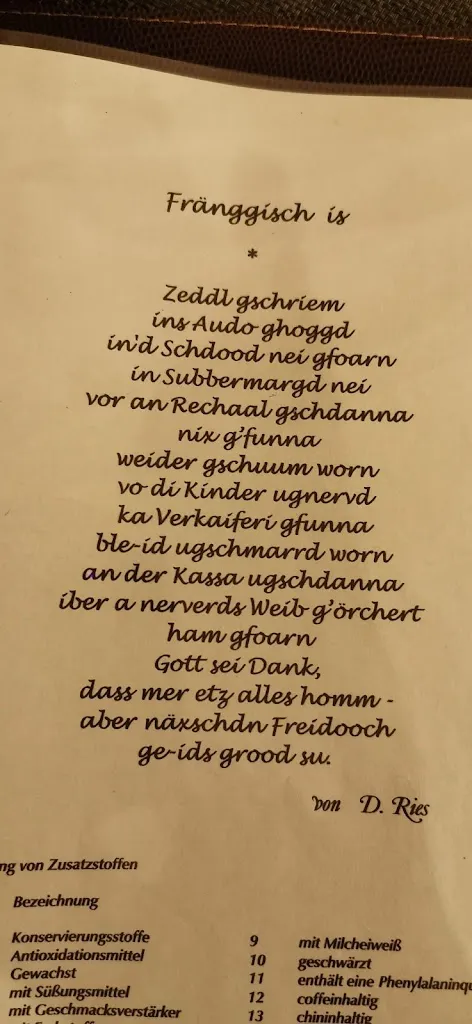 Fränggisch is
*
Zeddl gschriem
ins Audo ghoggd
in'd Schdood nei gfoarn
in Subbermargd nei
vor an Rechaal gschdanna
nix g'funna
weider gschuum worn
vo di Kinder ugnervd
ka Verkaiferi gfunna
ble-id ugschmarrd worn
an der Kassa ugschdanna
iber a nerverds Weib g'örchert
ham gfoarn
Gott sei Dank,
dass mer etz alles homm -
aber näxschdn Freidooch
ge-ids grood su.
von D. Ries
von Zusatzstoffen
Bezeichnung
Konservierungsstoffe 9 mit Milcheiweiß
Antioxidationsmittel 10 geschwärzt
Gewachst 11 enthält eine
mit Süßungsmittel 12 coffeinhaltig
mit Geschmacksverstärker 13 chininhaltig